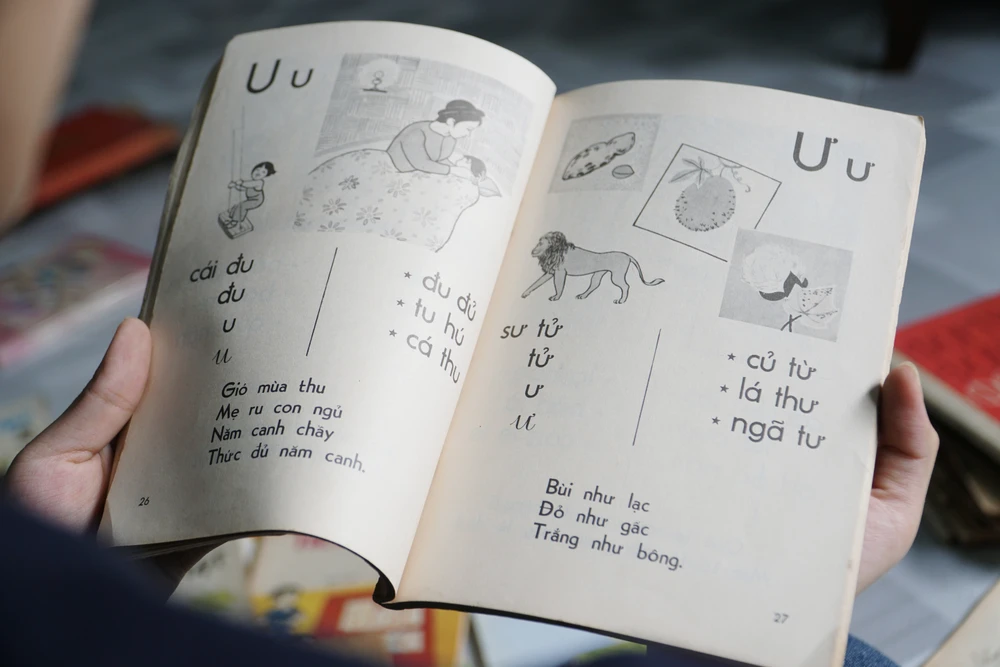 U u
cái đu
đu
u
u
* đu đủ
* tu hú
* cá thu
Gió mùa thu
Mẹ ru con ngủ
Năm canh chầy
Thức đủ năm canh.
26
Ư ư
sư tử
tử
ư
ư
* củ từ
* lá thư
* ngã tư
Bùi như lạc
Đỏ như gấc
Trắng như bông.
27